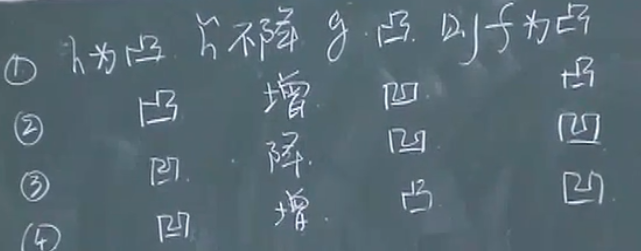 ① h为凸 h̃不降 g 凸 则f为凸
② 凸 增 凹 凸
③ 凹 降 凹 凹
④ 凹 增 凸 凹